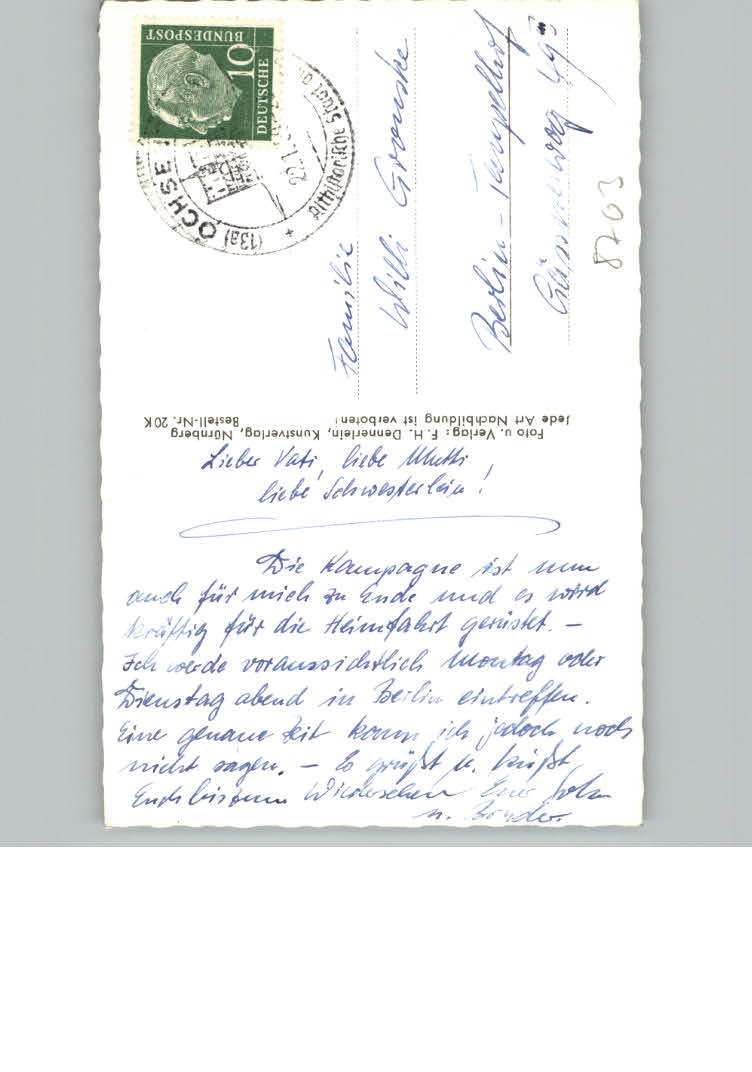 Lieber Vati, liebe Mutti
liebe Schwesterlein!
Die Kampagne ist nun
auch für mich zu Ende und es wird
kräftig für die Heimfahrt gerüstet. –
Ich werde voraussichtlich Montag oder
Dienstag abend in Berlin eintreffen.
Eine genaue Zeit kann ich jedoch noch
nicht sagen. – Es grüßt u. küßt
Euch bis zum Wiedersehen Euer Sohn
u. Bruder.
Familie
Willi
Berlin – Tempelhof
Foto u. Verlag: F. H. Dennerlein, Kunstverlag, Nürnberg
Jede Art Nachbildung ist verboten! Bestell-Nr. 20K
DEUTSCHE
BUNDESPOST
10
(13a) OCHSE
22.1.
Althistorische Stadt
8703